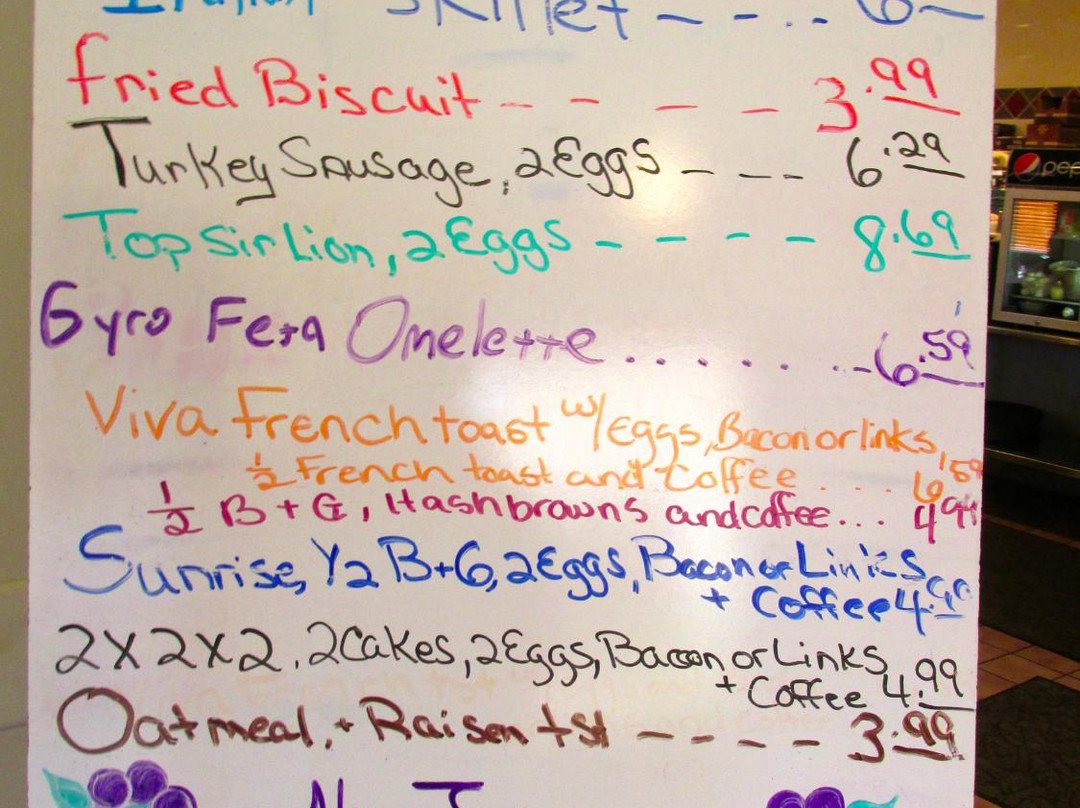 Skillet - - . . 6 -
Fried Biscuit - - - - 3.99
Turkey Sausage, 2 Eggs - - - - 6.29
Top Sir Lion, 2 Eggs - - - - 8.69
Gyro Feta Omelette . . . . . . . . 6.59
Viva French toast w/ eggs, Bacon or links,
1/2 French toast and Coffee . . . . 6.59
1/2 B + G, Hashbrowns and coffee . . . 4.99
Sunrise, 1/2 B+G, 2 Eggs, Bacon or Links
+ Coffee 4.99
2X2X2. 2 Cakes, 2 Eggs, Bacon or Links
+ Coffee 4.99
Oatmeal, + Raisen tst - - - - 3.99